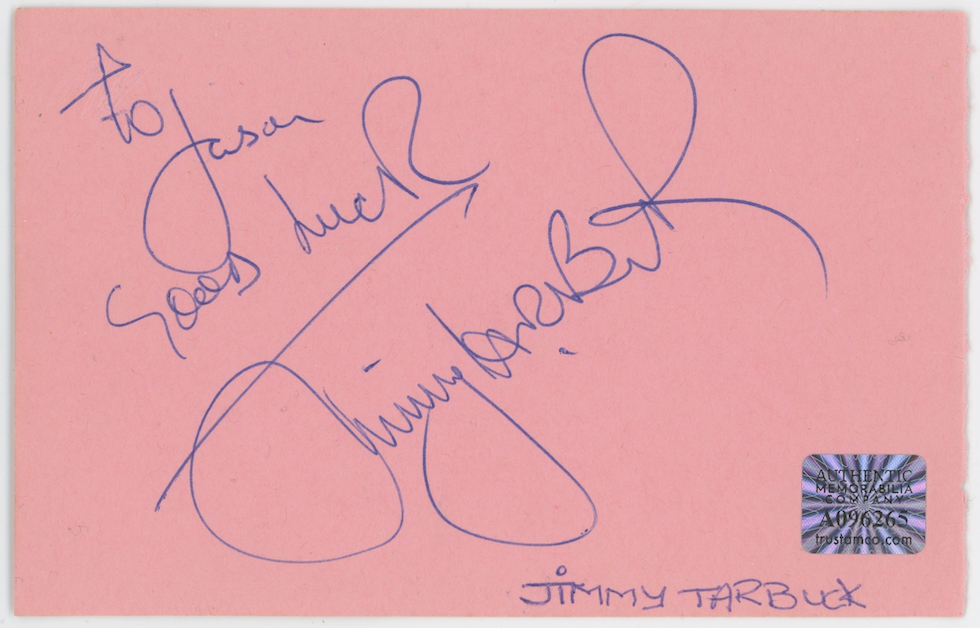 to Jason
Good Luck
Jimmy Tarbuck
AUTHENTIC
MEMORABILIA
COMPANY
A096265
trustamco.com
JIMMY TARBUCK